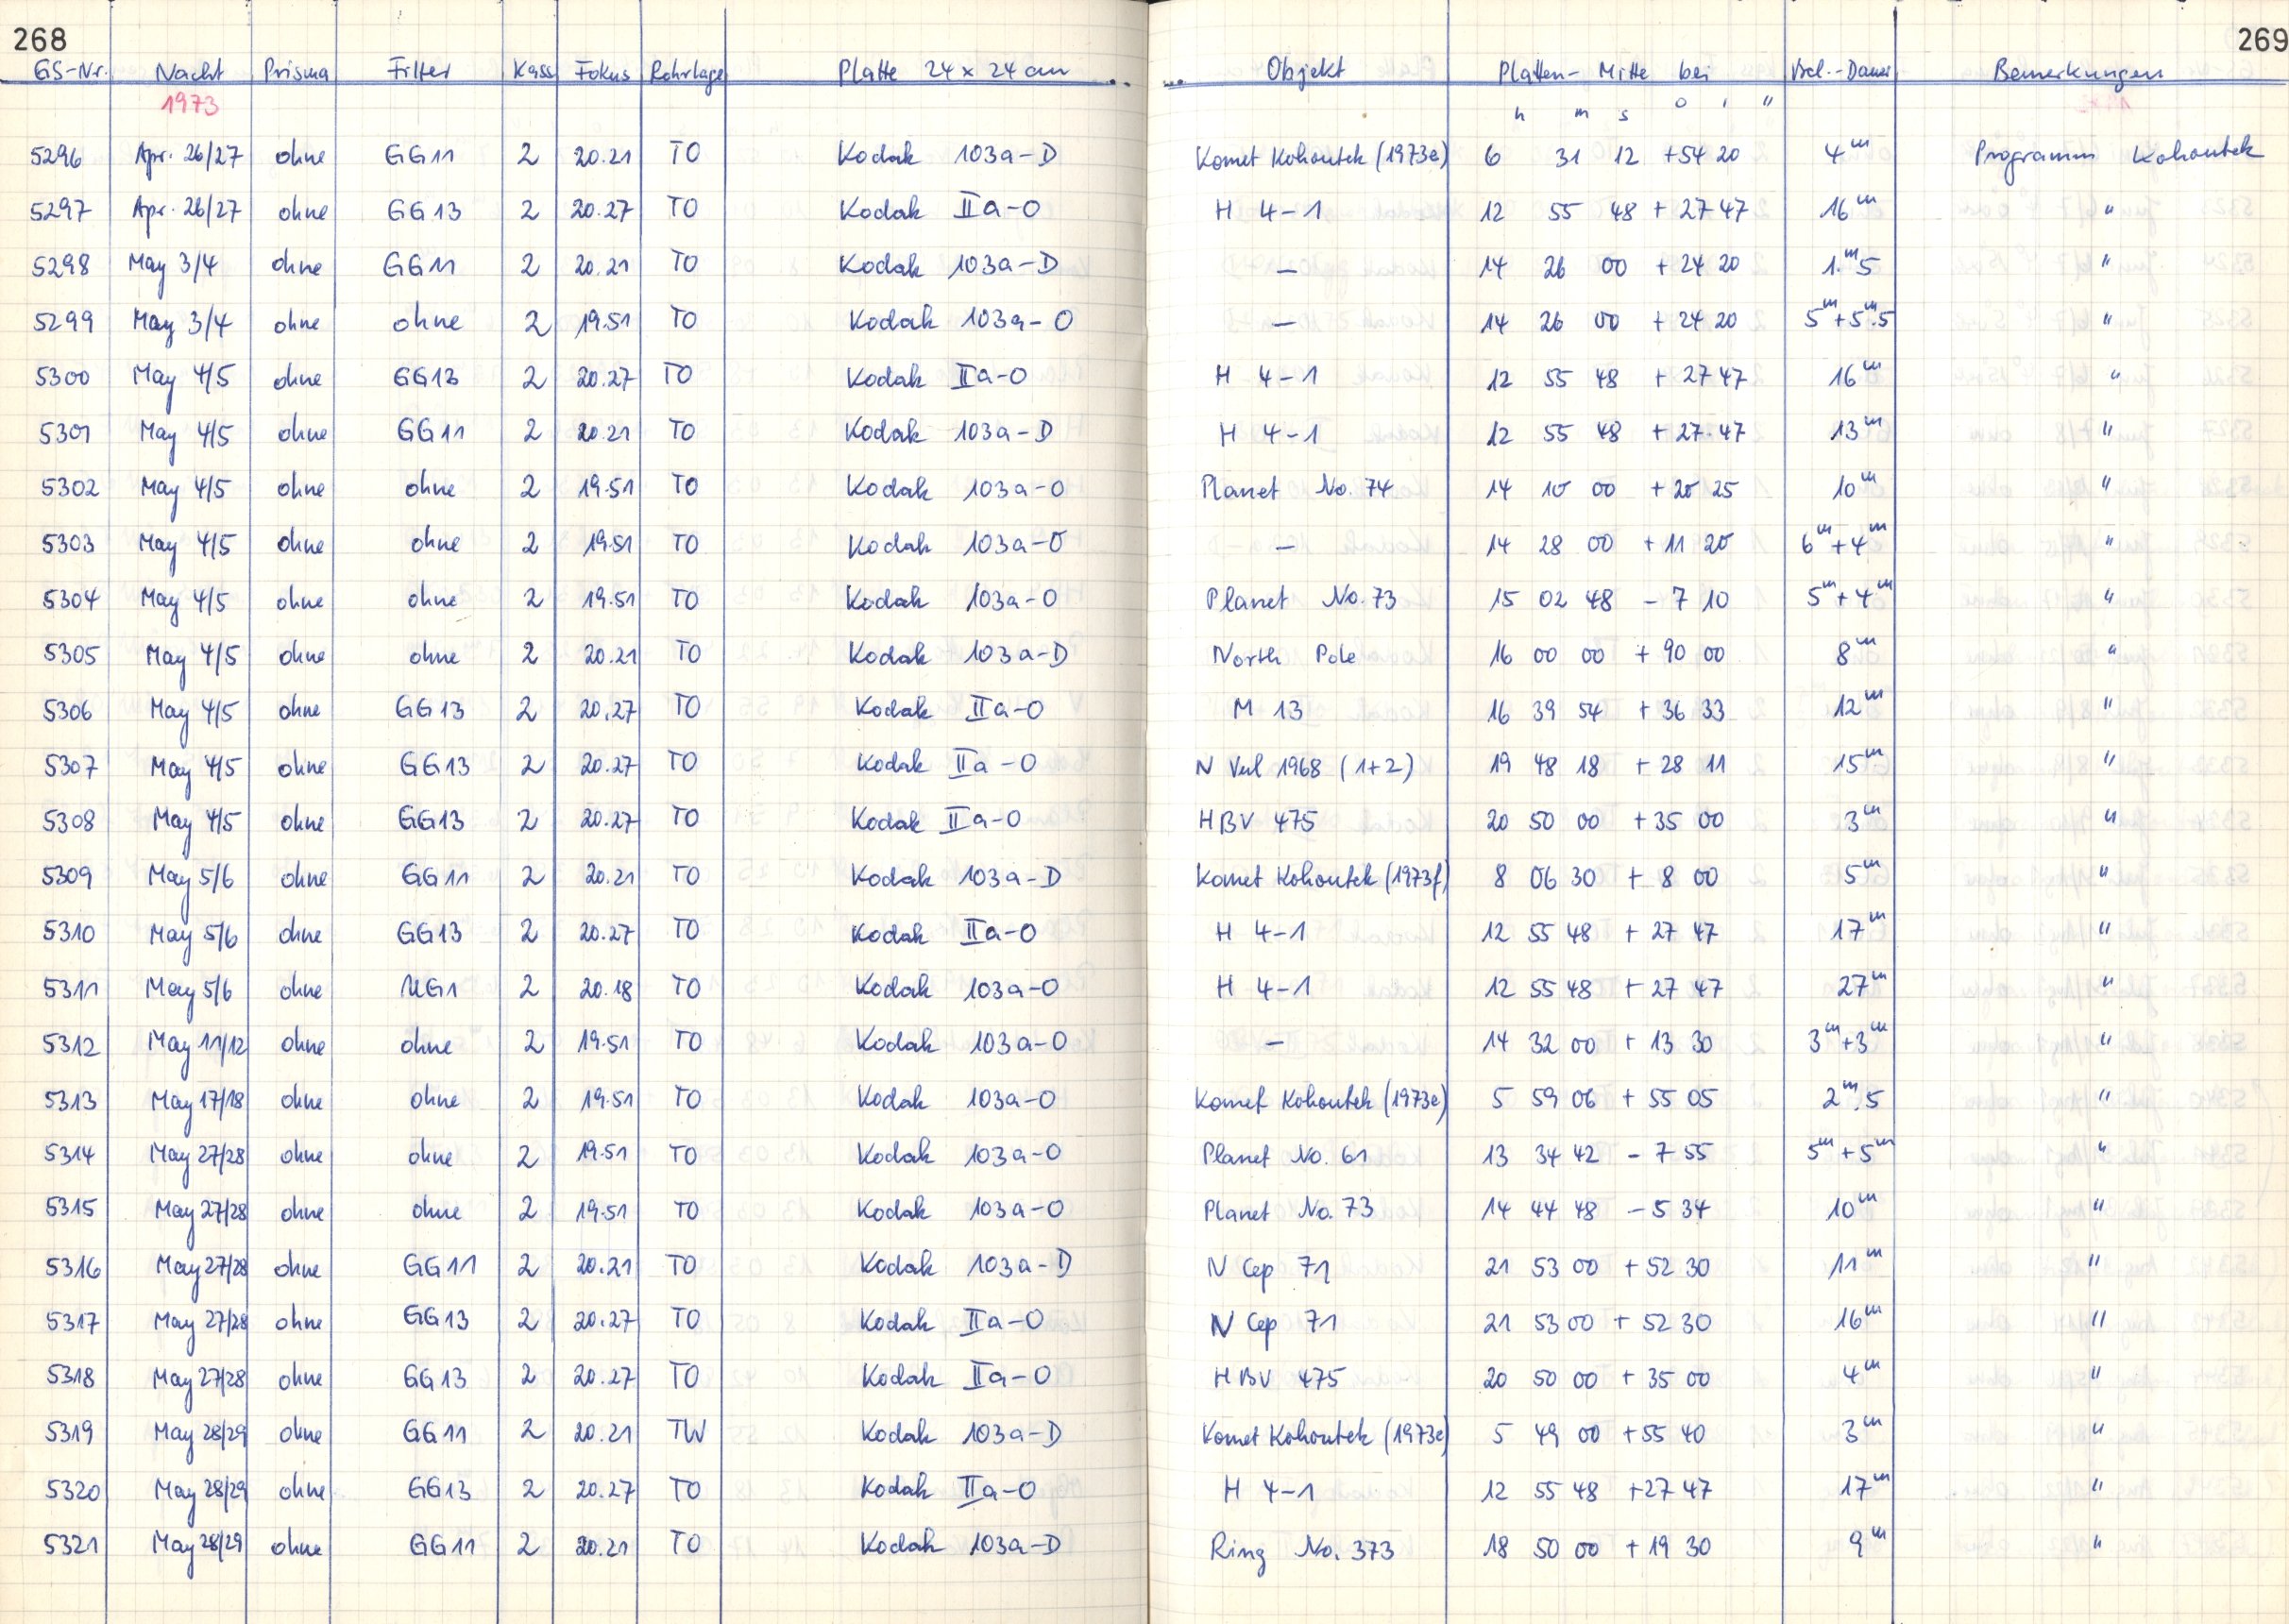 268 269
GS-Nr. Nacht Prisma Filter Kass Fokus Rohrlage Platte 24 x 24 cm ... Objekt Platten-Mitte bei Bel.-Dauer Bemerkungen
1973 h m s ° ' "
5296 Apr. 26/27 ohne GG11 2 20.21 TO Kodak 103a-D Komet Kohoutek (1973e) 6 31 12 +54 20 4m Programm Kohoutek
5297 Apr. 26/27 ohne GG13 2 20.27 TO Kodak IIa-O H 4-1 12 55 48 +27 47 16m "
5298 May 3/4 ohne GG11 2 20.21 TO Kodak 103a-D — 14 26 00 +24 20 1.m5 "
5299 May 3/4 ohne ohne 2 19.51 TO Kodak 103a-O — 14 26 00 +24 20 5m+5m.5 "
5300 May 4/5 ohne GG13 2 20.27 TO Kodak IIa-O H 4-1 12 55 48 +27 47 16m "
5301 May 4/5 ohne GG11 2 20.21 TO Kodak 103a-D H 4-1 12 55 48 +27.47 13m "
5302 May 4/5 ohne ohne 2 19.51 TO Kodak 103a-O Planet No. 74 14 10 00 +20 25 10m "
5303 May 4/5 ohne ohne 2 19.51 TO Kodak 103a-O — 14 28 00 +11 20 6m+4m "
5304 May 4/5 ohne ohne 2 19.51 TO Kodak 103a-O Planet No. 73 15 02 48 -7 10 5m+4m "
5305 May 4/5 ohne ohne 2 20.21 TO Kodak 103a-D North Pole 16 00 00 +90 00 8m "
5306 May 4/5 ohne GG13 2 20.27 TO Kodak IIa-O M 13 16 39 54 +36 33 12m "
5307 May 4/5 ohne GG13 2 20.27 TO Kodak IIa-O N Vul 1968 (1+2) 19 48 18 +28 11 15m "
5308 May 4/5 ohne GG13 2 20.27 TO Kodak IIa-O HBV 475 20 50 00 +35 00 3m "
5309 May 5/6 ohne GG11 2 20.21 TO Kodak 103a-D Komet Kohoutek (1973f) 8 06 30 +8 00 5m "
5310 May 5/6 ohne GG13 2 20.27 TO Kodak IIa-O H 4-1 12 55 48 +27 47 17m "
5311 May 5/6 ohne UG1 2 20.18 TO Kodak 103a-O H 4-1 12 55 48 +27 47 27m "
5312 May 11/12 ohne ohne 2 19.51 TO Kodak 103a-O — 14 32 00 +13 30 3m+3m "
5313 May 17/18 ohne ohne 2 19.51 TO Kodak 103a-O Komet Kohoutek (1973e) 5 59 06 +55 05 2m.5 "
5314 May 27/28 ohne ohne 2 19.51 TO Kodak 103a-O Planet No. 61 13 34 42 -7 55 5m+5m "
5315 May 27/28 ohne ohne 2 19.51 TO Kodak 103a-O Planet No. 73 14 44 48 -5 34 10m "
5316 May 27/28 ohne GG11 2 20.21 TO Kodak 103a-D N Cep 71 21 53 00 +52 30 11m "
5317 May 27/28 ohne GG13 2 20.27 TO Kodak IIa-O N Cep 71 21 53 00 +52 30 16m "
5318 May 27/28 ohne GG13 2 20.27 TO Kodak IIa-O HBV 475 20 50 00 +35 00 4m "
5319 May 28/29 ohne GG11 2 20.21 TW Kodak 103a-D Komet Kohoutek (1973e) 5 49 00 +55 40 3m "
5320 May 28/29 ohne GG13 2 20.27 TO Kodak IIa-O H 4-1 12 55 48 +27 47 17m "
5321 May 28/29 ohne GG11 2 20.21 TO Kodak 103a-D Ring No. 373 18 50 00 +19 30 9m "